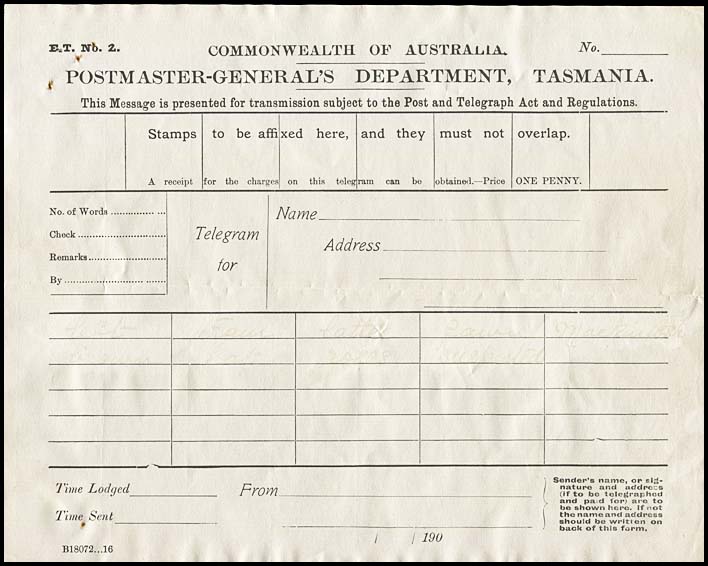 E.T. No. 2.
COMMONWEALTH OF AUSTRALIA.
No.
POSTMASTER-GENERAL'S DEPARTMENT, TASMANIA.
This Message is presented for transmission subject to the Post and Telegraph Act and Regulations.
Stamps to be affixed here, and they must not overlap.
A receipt for the charges on this telegram can be obtained.—Price ONE PENNY.
No. of Words
Check
Remarks
By
Telegram
for
Name
Address
Time Lodged
Time Sent
From
/ / 190
Sender's name, or sig-
nature and address
(if to be telegraphed
and paid for) are to
be shown here. If not
the name and address
should be written on
back of this form.
B18072...16